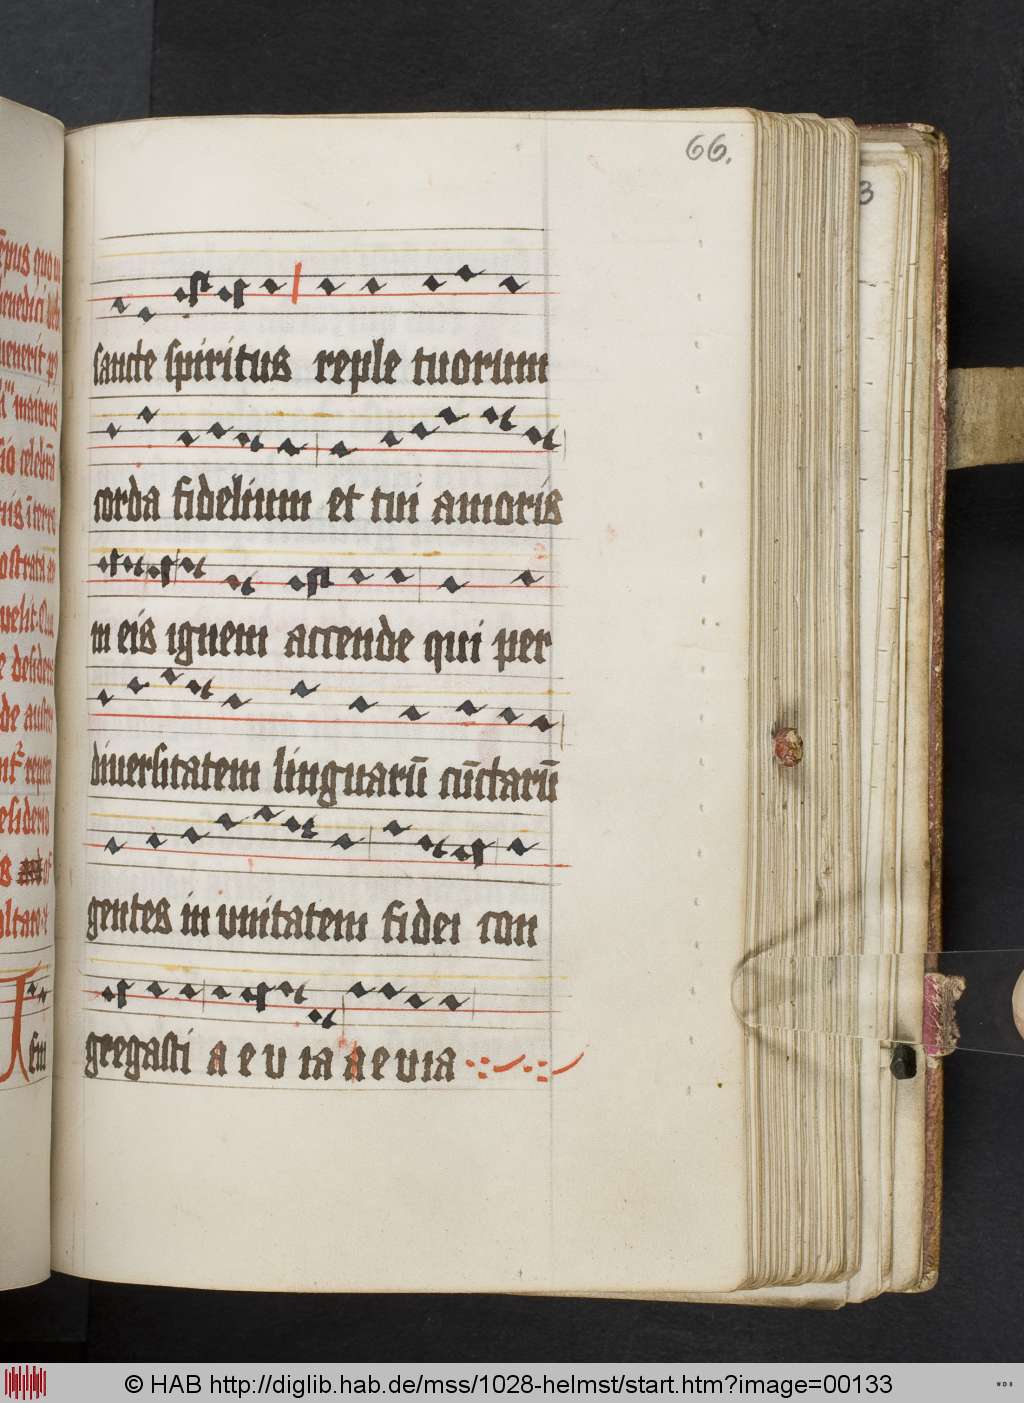 66.
3
sancte spiritus reple tuorum
corda fidelium et tui amoris
in eis ignem accende qui per
diuersitatem linguarū cūctarū
gentes in vnitatem fidei con
gregasti a e v ia a e v ia
quo
benedici
uenerit
maioris
desiderio
© HAB http://diglib.hab.de/mss/1028-helmst/start.htm?image=00133